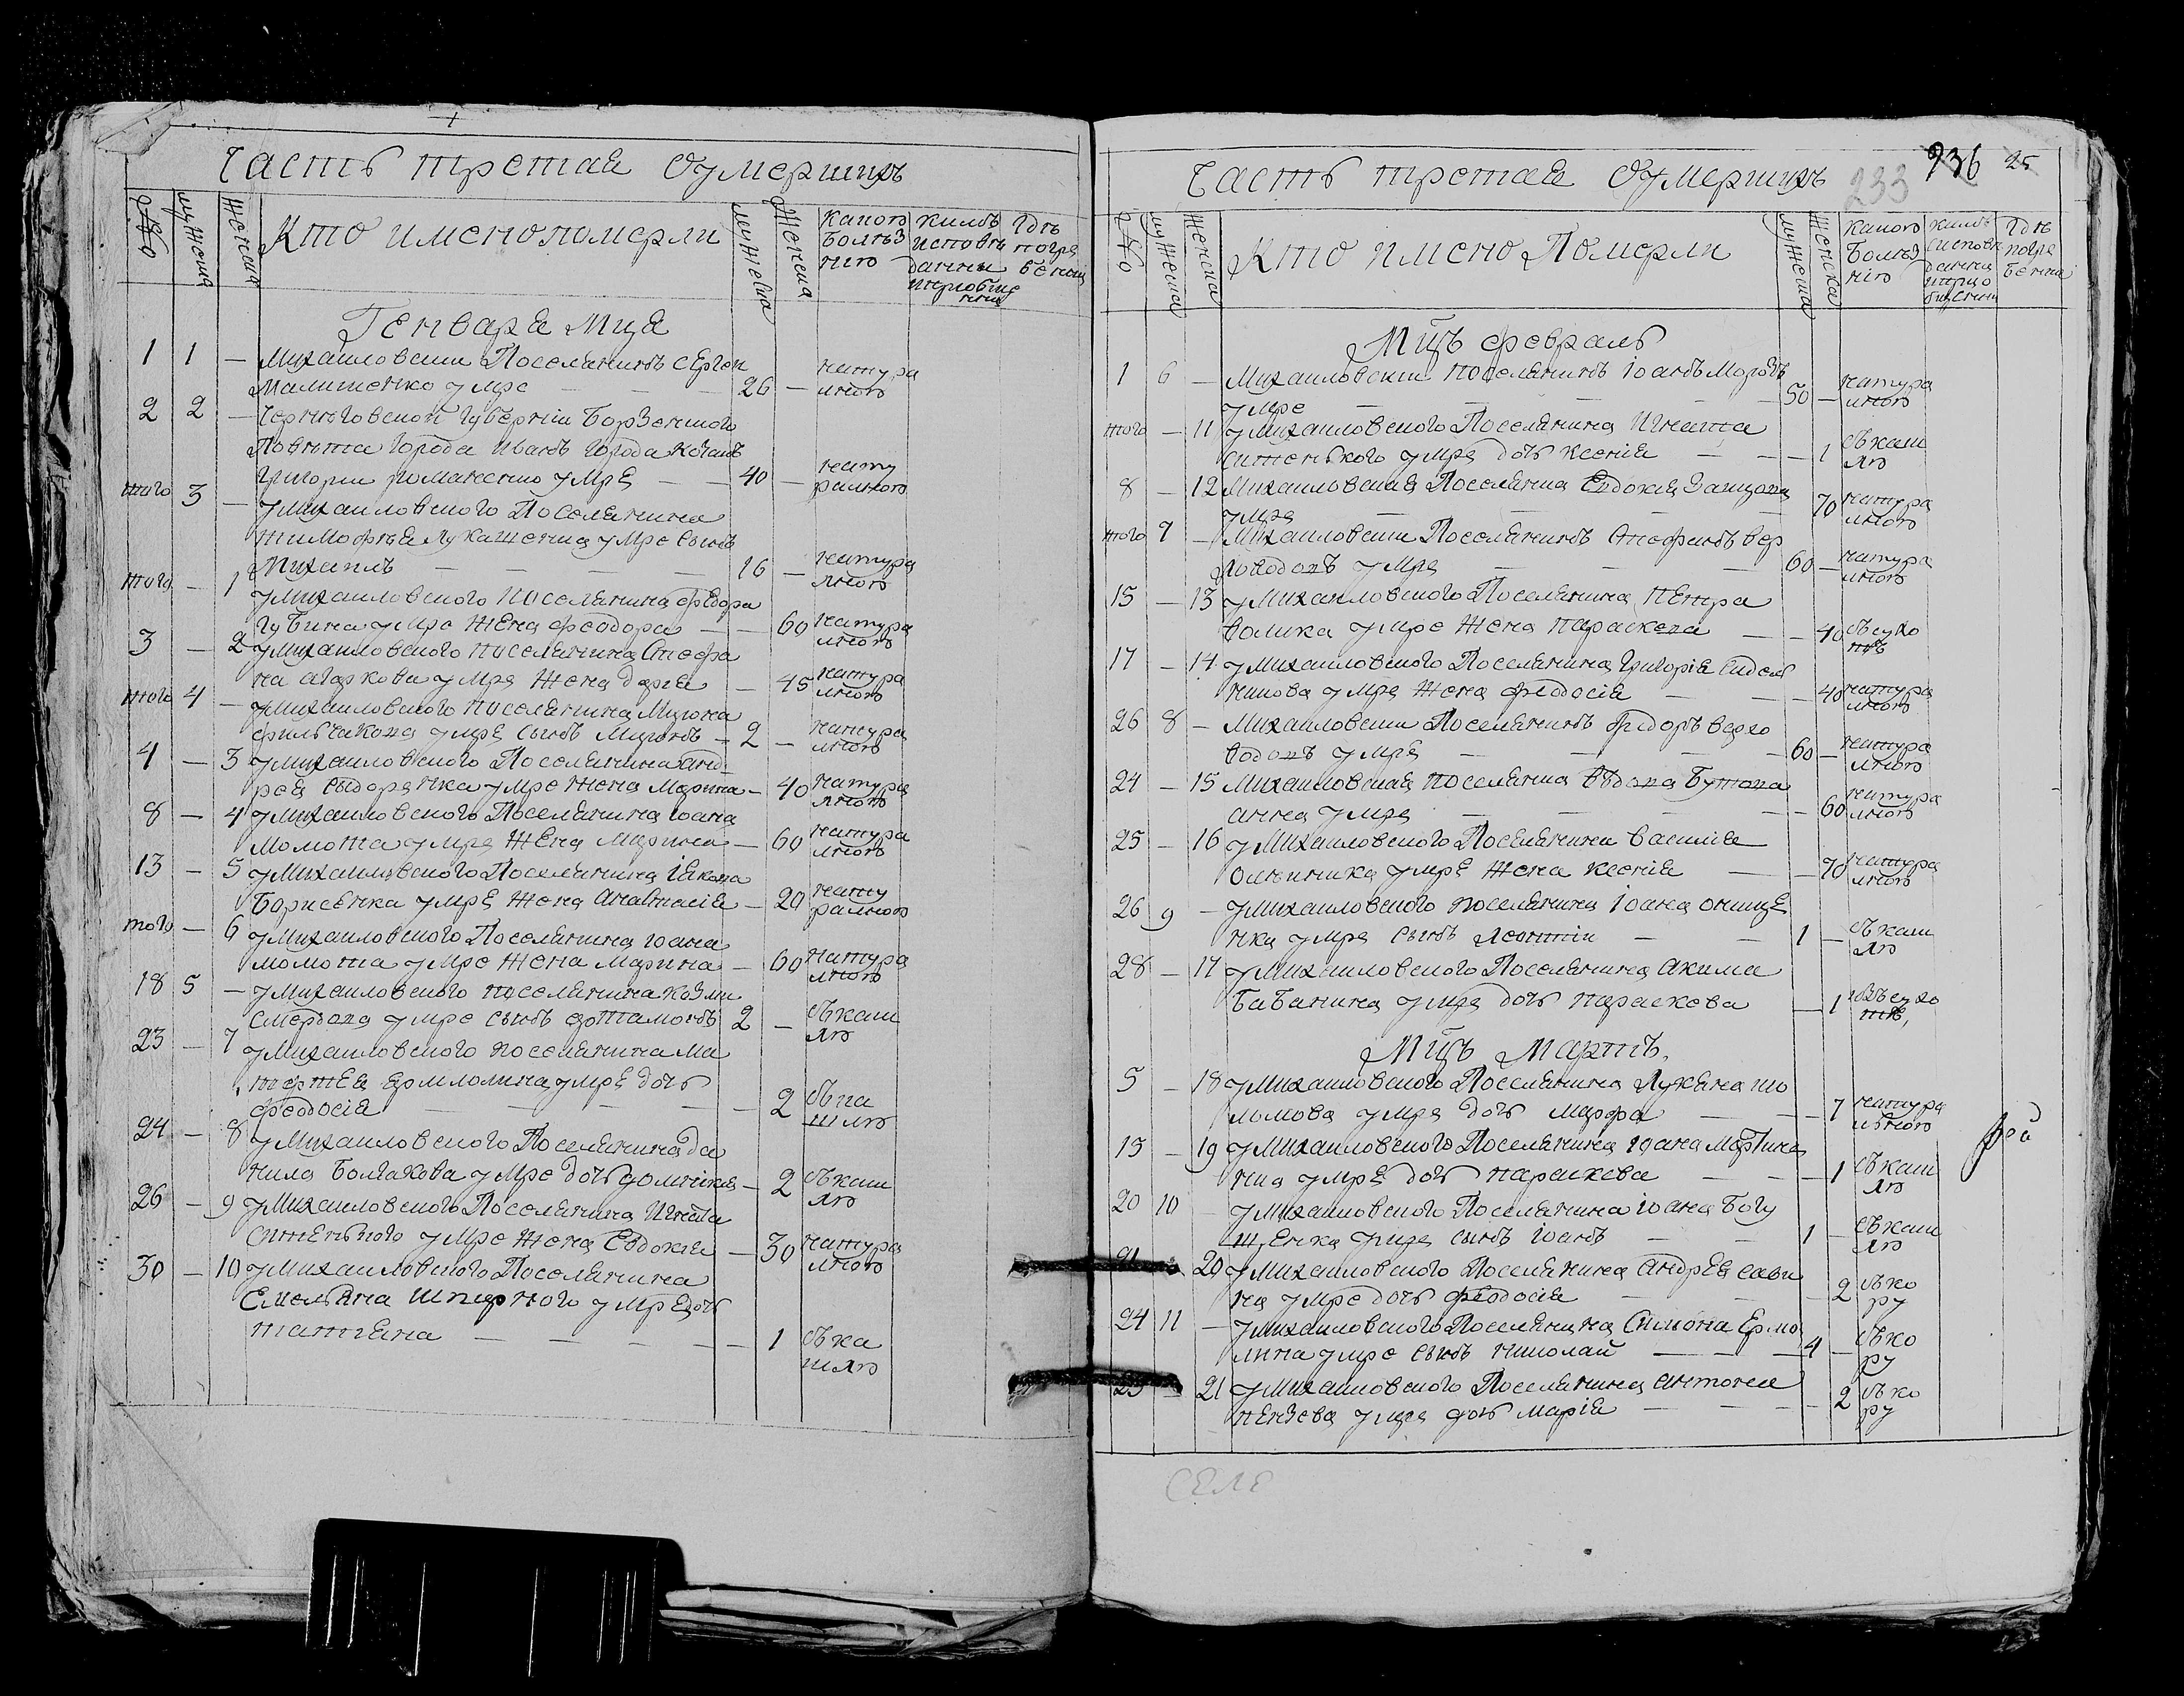 Часть третая оумершихъ
№о мужеска женска Кто имено померли мужеска женска какою болѣз нїю кимъ исповѣ данни и пріобще нни гдѣ погре бенни
Генваря мца
1 1 — Михаиловски Поселянинъ Сергеи
Малишенко умре — 26 — натура лною
2 2 — Чернѣговской губернїи Борзенского
Повѣта города
Григории романенко умре — 40 — нату ралною
того 3 — у михаиловского Поселянина
тимофѣя лукашенка умре сынъ
Михаилъ — 16 — натура лною
того — 1 у михаиловского поселянина федора
губина умре жена феодора — 60 натура лною
3 — 2 у михаиловского поселянина Стефа
на умре жена дарїя — 45 натура лною
того 4 — у михаиловского поселянина Мирона
фильчакова умре сынъ Миронъ — 2 — натура лною
4 — 3 у михаиловского Поселянина анд
рея сыдоренка умре жена Марина — 40 натура лною
8 — 4 у михаиловского Поселянина иоана
Момота умре жена Марина — 60 натура лною
13 — 5 у михаиловского Поселянина їякова
Борисенка умре жена анастасїя — 20 нату ралною
того — 6 у михаиловского Поселянина иоана
момота умре жена марина — 60 натура лною
18 5 — у михаиловского поселянина козми
умре сынъ 2 — съкаш лю
23 — 7 у михаиловского поселянина ма
тофтея ермлолина умре дочь
феодосїя — 2 съка шлю
24 — 8 у михаиловского Поселянина да
нила Болгакова умре дочь домникия — 2 съкаш лю
26 — 9 у михаиловского Поселянина Игната
ситенького умре жена Евдокїя — 30 натура лною
30 — 10 у михаиловского Поселянина
Емельяна умре дочь
татїяна — 1 съка шлю
Часть третая оумершихъ 233 236 25
№о мужеска женска Кто имено Померли мужеска женска какою болѣз нїю кимъ исповѣ данна и прио бщенни гдѣ погре бенна
Мцъ февраль
1 6 — Михаиловски поселянинъ иоанъ Морозъ
умре — 50 — натура лною
того — 11 у михаиловского Поселянина Игната
ситенького умре дочь ксенїя — 1 съкаш лю
8 — 12 Михаиловская Поселянка Евдокїя
умре — 70 натура лною
того 7 — Михаиловски Поселянинъ Стефанъ вер
ловодовъ умре — 60 — натура лною
15 — 13 у михаиловского Поселянина Петра
волика умре жена параскева — 40 съсухо ткѣ
17 — 14 у михаиловского Поселянина григорїя сидель
никова умре жена феодосїя — 40 натура лною
26 8 — Михаиловски Поселянинъ федоръ верхо
водовъ умре — 60 — натура лною
24 — 15 Михаиловская поселянка вѣдова
анна умре — 60 натура лною
25 — 16 у михаиловского Поселянина василїя
олѣиника умре жена ксенїя — 70 натура лною
26 9 — у михаиловского поселянина иоана онище
нка умре сынъ леонтїи — 1 — съкаш лю
28 — 17 у михаиловского Поселянина акима
бабанина умре дочь параскева — 1 съсухо ткѣ
Мцъ Мартъ
5 — 18 у михаиловского Поселянина лукяна шо
ломова умре дочь марфа — 7 натура льною
13 — 19 у михаиловского Поселянина иоана мартине
нка умре дочь параскева — 1 съкаш лю
20 10 — у михаиловского Поселянина иоана богу
щенка умре сынъ иоанъ — 1 — съкаш лю
21 — 20 у михаиловского Поселянина андрея сави
на умре дочь феодосїя — 2 съко ру
24 11 — у михаиловского Поселянина Симона Ермо
лина умре сынъ николаи — 4 — съко ру
25 — 21 у михаиловского Поселянина антона
пензева умре дочь марїя — 2 съко ру
СЕЛЕ